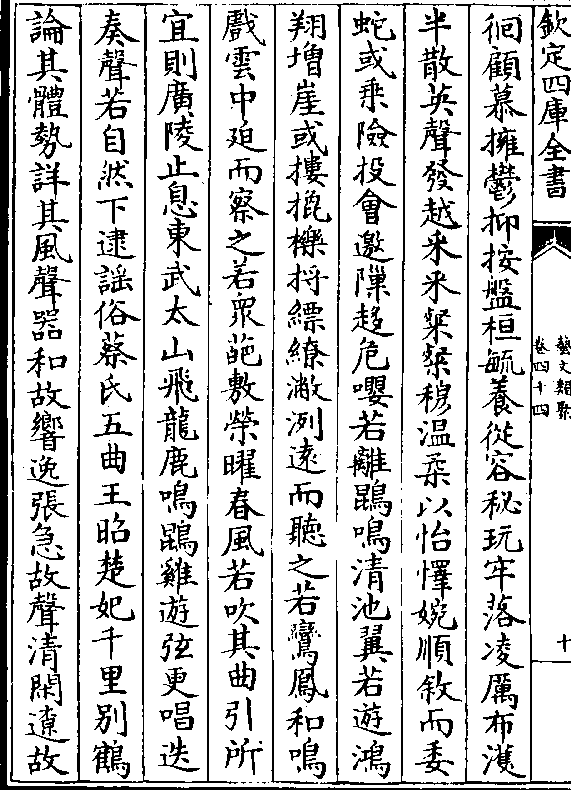 欽定四庫全書
藝文類聚
卷四十四
十
徊顧慕擁鬱抑按盤桓毓養從容秘玩牢落凌厲布濩
半散英聲發越采采粲粲穆温柔以怡懌婉順敘而委
蛇或乗險投會邀隟趍危嚶若離鵾鳴清池翼若遊鴻
翔増崖或摟搋櫟捋縹繚潎洌遠而聽之若鸞鳳和鳴
戲雲中廹而察之若衆葩敷榮曜春風若吹其曲引所
宜則廣陵止息東武太山飛龍鹿鳴鵾雞遊弦更唱迭
奏聲若自然下逮謡俗蔡氏五曲王昭楚妃千里别鶴
論其體勢詳其風聲器和故響逸張急故聲清閑遼故